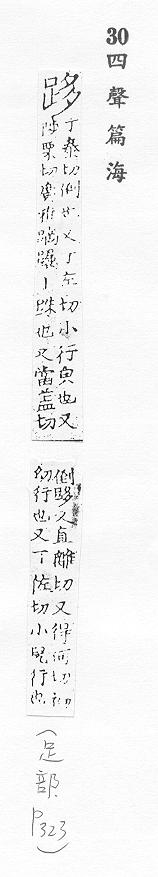 30 四聲篇海
跢
丁泰切倒也又丁左切小行皃也又
陟栗切廣雅踟躕丨跦也又當盖切
倒跢又直離切又得何切初
幼行也又丁佐切小兒行也
（足部 P323）